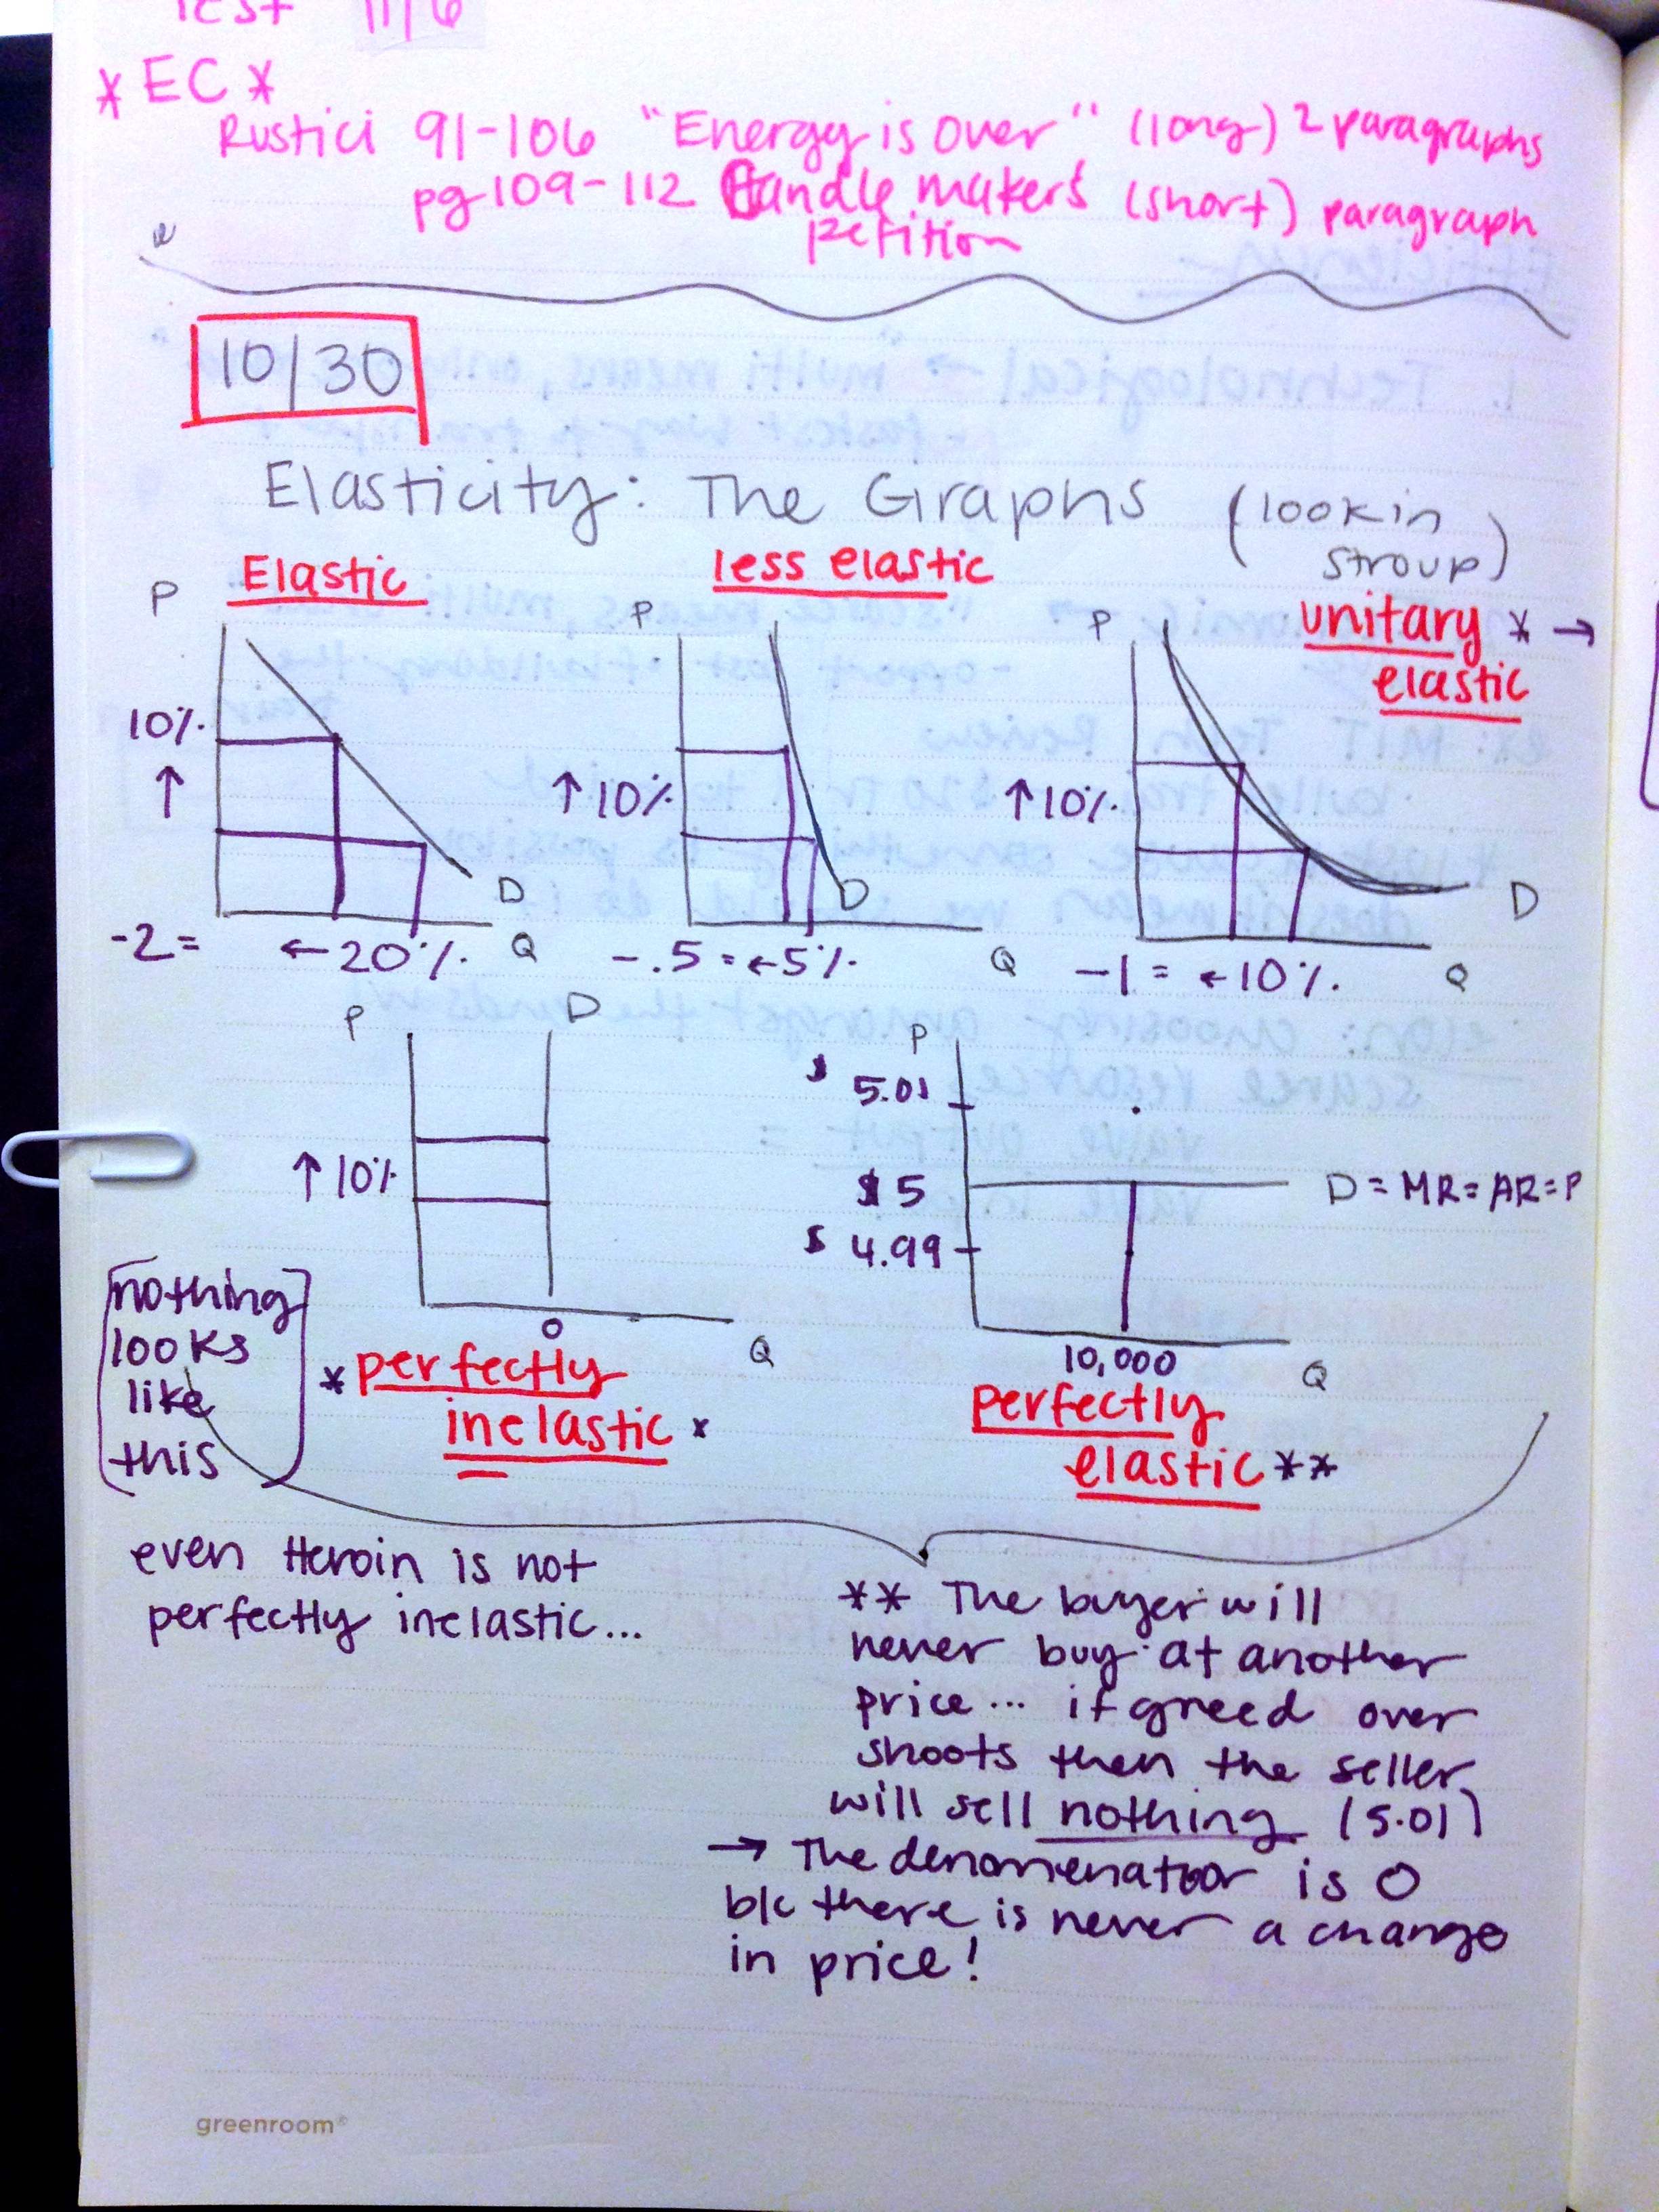 Test 11/6
*EC*
Rustici 91-106 "Energy is Over" (long) 2 paragraphs
pg 109-112 Candle makers (short) paragraph
petition
10/30
Elasticity: The Graphs (look in
stroup)
Elastic
less elastic
unitary * →
elastic
P
P
P
10%
↑
↑10%
↑10%
D
D
D
-2 = ←20% Q
-.5 = ←5% Q
-1 = ←10% Q
P D
↑10%
0
Q
*perfectly
inelastic*
P
$ 5.01
$5 D = MR = AR = P
$ 4.99
10,000
Q
perfectly
elastic **
[nothing
looks
like
this]
even Heroin is not
perfectly inelastic...
** The buyer will
never buy at another
price... if greed over
shoots then the seller
will sell nothing (5.01)
→ The denomenator is 0
b/c there is never a change
in price!
greenroom®